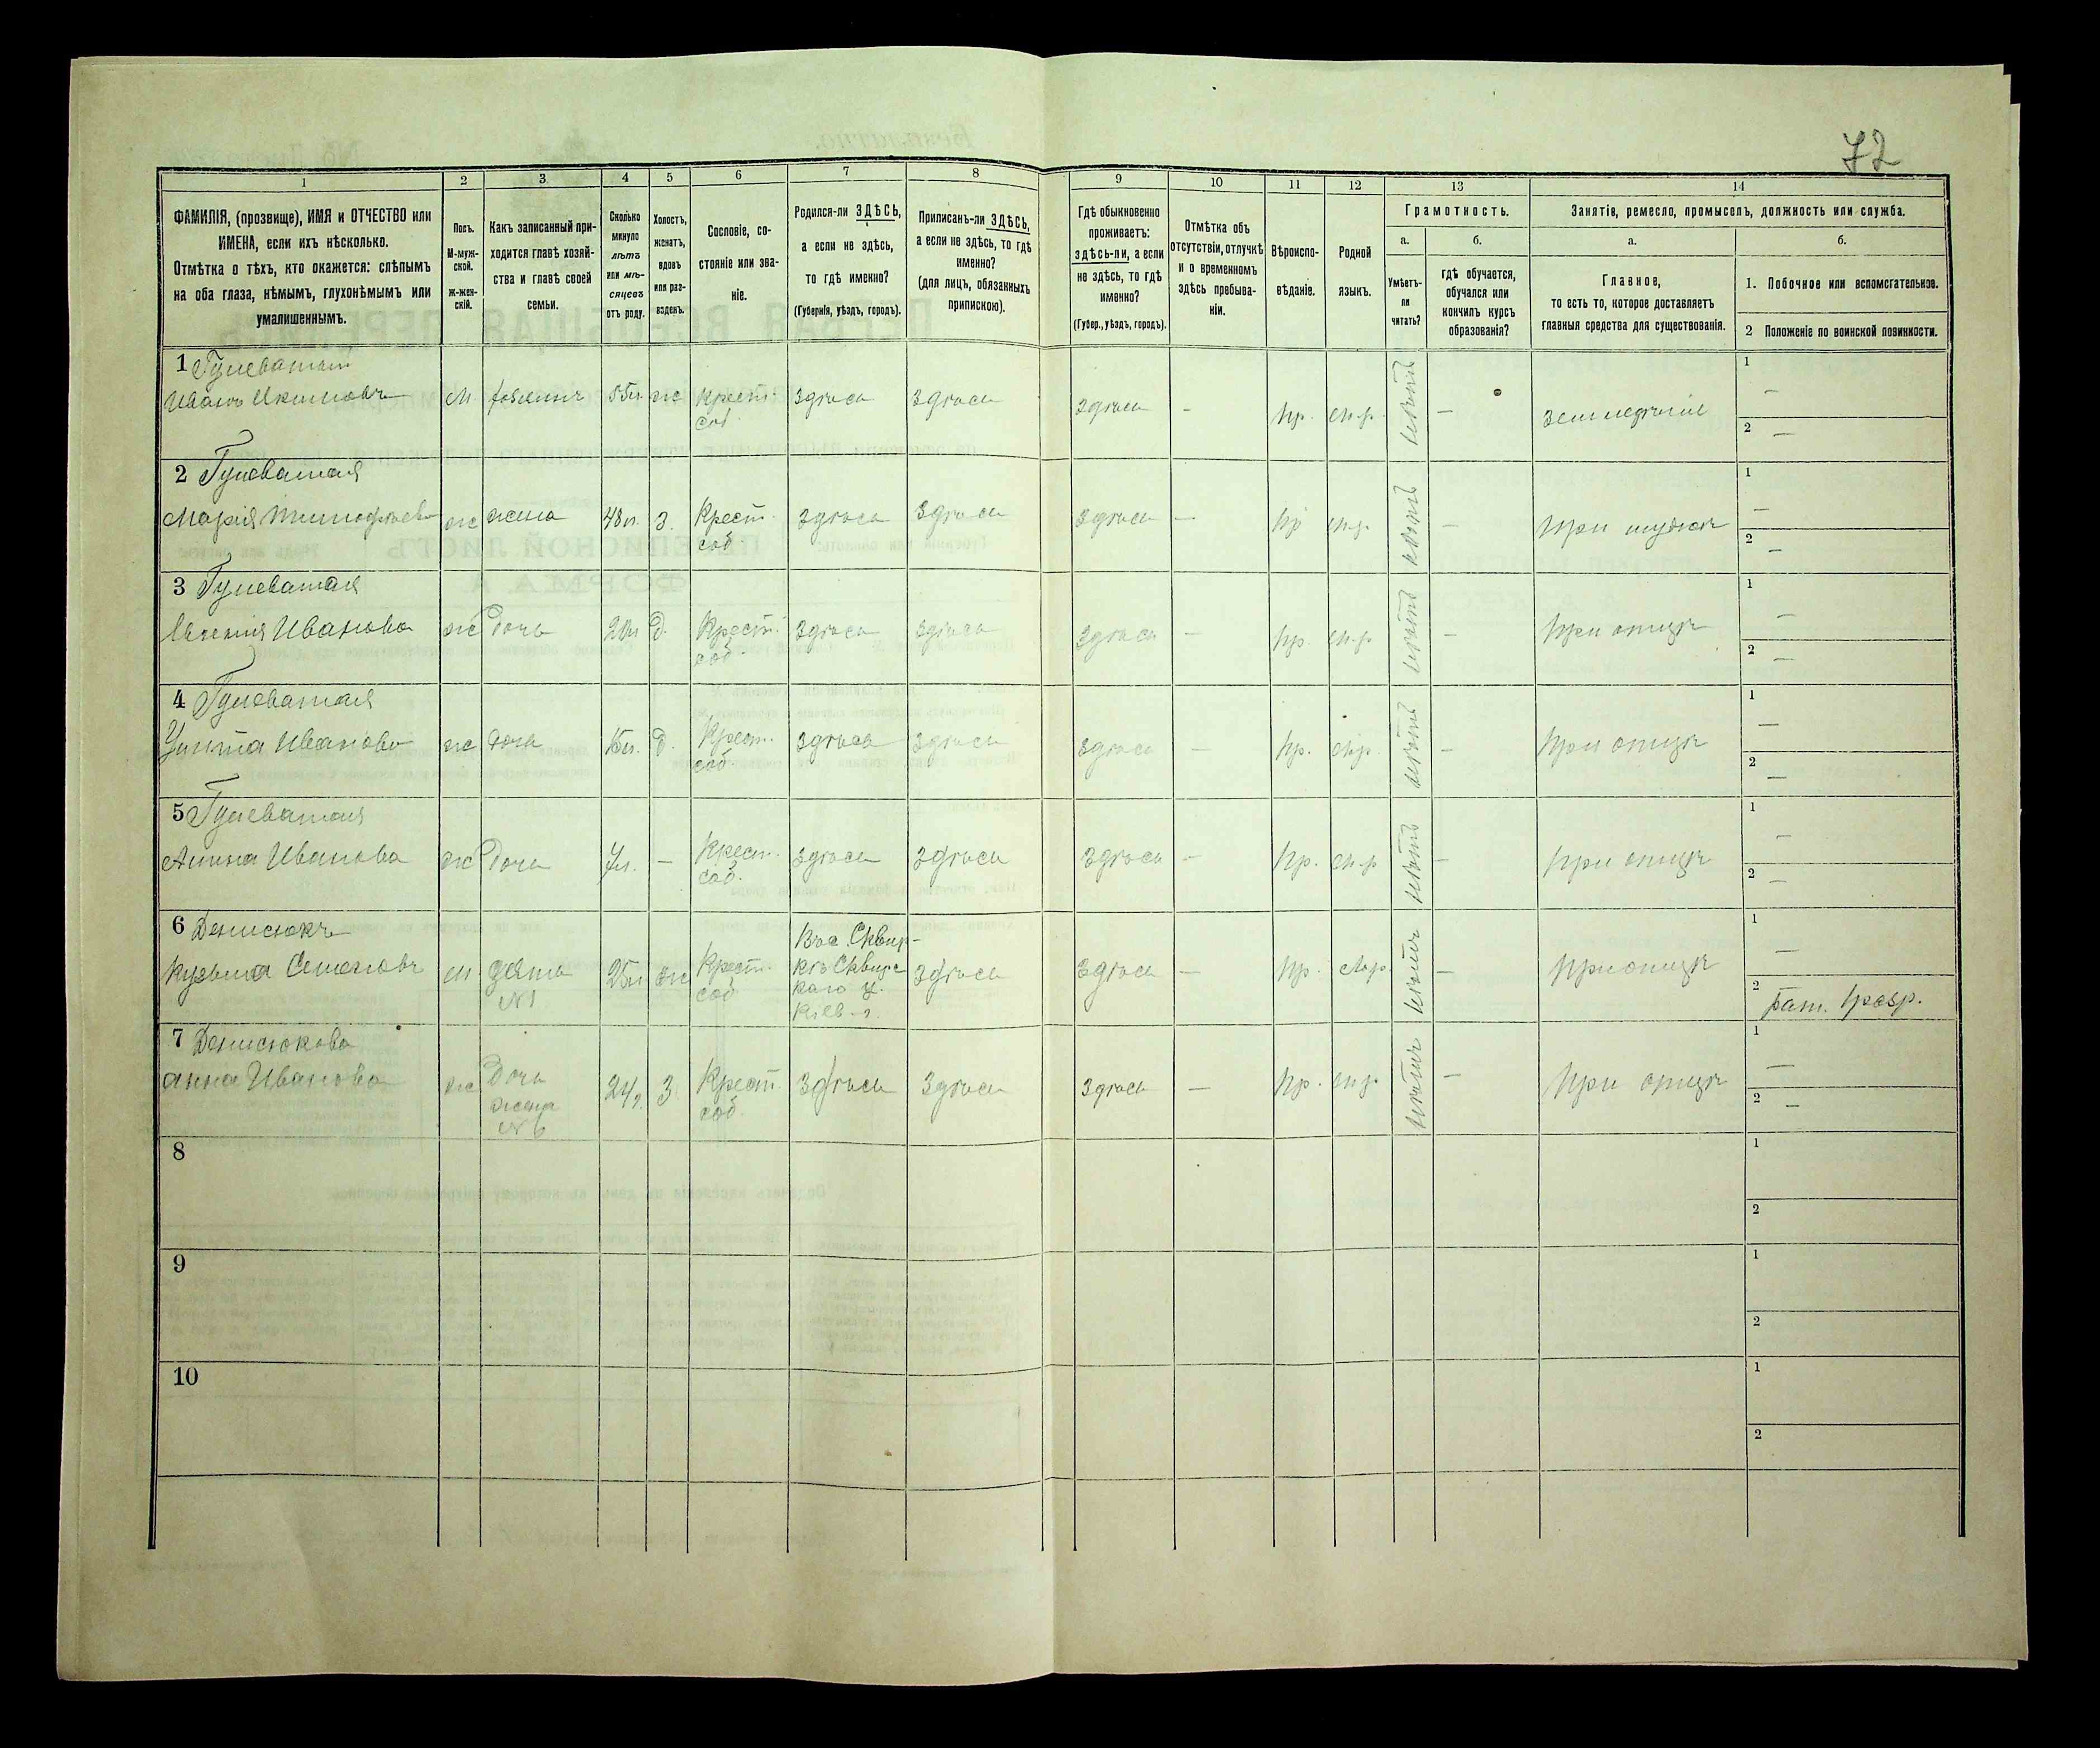 72
1 2 3 4 5 6 7 8 9 10 11 12 13 14
ФАМИЛІЯ, (прозвище), ИМЯ и ОТЧЕСТВО или
ИМЕНА, если ихъ нѣсколько.
Отмѣтка о тѣхъ, кто окажется: слѣпымъ
на оба глаза, нѣмымъ, глухонѣмымъ или
умалишеннымъ.
Полъ.
М-муж-
ской.
ж-жен-
скій.
Какъ записанный при-
ходится главѣ хозяй-
ства и главѣ своей
семьи.
Сколько
минуло
лѣтъ
или мѣ-
сяцевъ
отъ роду.
Холостъ,
женатъ,
вдовъ
или раз-
веденъ.
Сословіе, со-
стояніе или зва-
ніе.
Родился-ли ЗДѢСЬ,
а если не здѣсь,
то гдѣ именно?
(Губернія, уѣздъ, городъ).
Приписанъ-ли ЗДѢСЬ,
а если не здѣсь, то гдѣ
именно?
(для лицъ, обязанныхъ
припискою).
Гдѣ обыкновенно
проживаетъ:
здѣсь-ли, а если
не здѣсь, то гдѣ
именно?
(Губер., уѣздъ, городъ).
Отмѣтка объ
отсутствіи, отлучкѣ
и о временномъ
здѣсь пребыва-
ніи.
Вѣроиспо-
вѣданіе.
Родной
языкъ.
Грамотность.
а.
Умѣетъ-
ли
читать?
б.
гдѣ обучается,
обучался или
кончилъ курсъ
образованія?
Занятіе, ремесло, промыселъ, должность или служба.
а.
Главное,
то есть то, которое доставляетъ
главныя средства для существованія.
б.
1. Побочное или вспомогательное.
2 Положеніе по воинской повинности.
1 Гулеватый
Иванъ Акимовъ м хозяинъ 55л ж крест. соб. здѣсь здѣсь здѣсь — пр. м.р. нѣтъ — земледѣліе 1 — 2 —
2 Гулеватая
Марія Тимофѣева ж жена 48л. З. Крест. соб. здѣсь здѣсь здѣсь — пр м.р. нѣтъ — при мужѣ 1 — 2 —
3 Гулеватая
Евгенія Иванова ж дочь д. Крест. соб. здѣсь здѣсь здѣсь — пр. м.р. нѣтъ — при отцѣ 1 — 2 —
4 Гулеватая
Улита Иванова ж дочь 15л. д. Крест. соб. здѣсь здѣсь здѣсь — пр. м.р. нѣтъ — при отцѣ 1 — 2 —
5 Гулеватая
Анна Иванова ж дочь 7л. — Крест. соб. здѣсь здѣсь здѣсь — пр. м.р нѣтъ — при отцѣ 1 — 2 —
6 Денисюкъ
Кузьма Семеновъ м зять №1 25л ж Крест. соб Въ с. Сквир-
кѣ Сквирс
каго у.
Кіев. г. здѣсь здѣсь — пр. м.р. нѣтъ — при отцѣ 1 — 2 рат. 1 разр.
7 Денисюкова
Анна Иванова ж дочь жена №6 24л. З. Крест. соб. здѣсь здѣсь здѣсь — пр. м.р. нѣтъ — при отцѣ 1 — 2 —
8 1 2
9 1 2
10 1 2